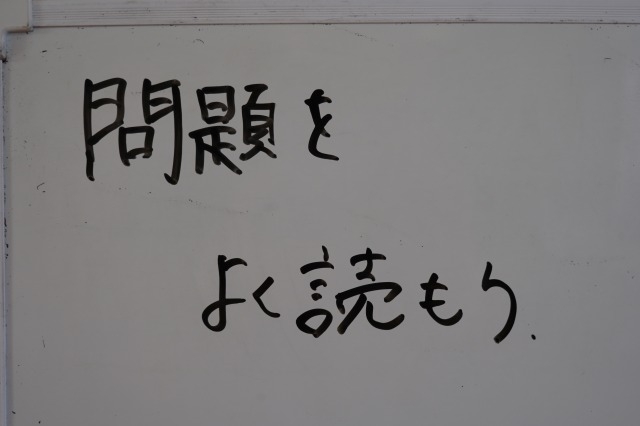 問題を
よく読もう.